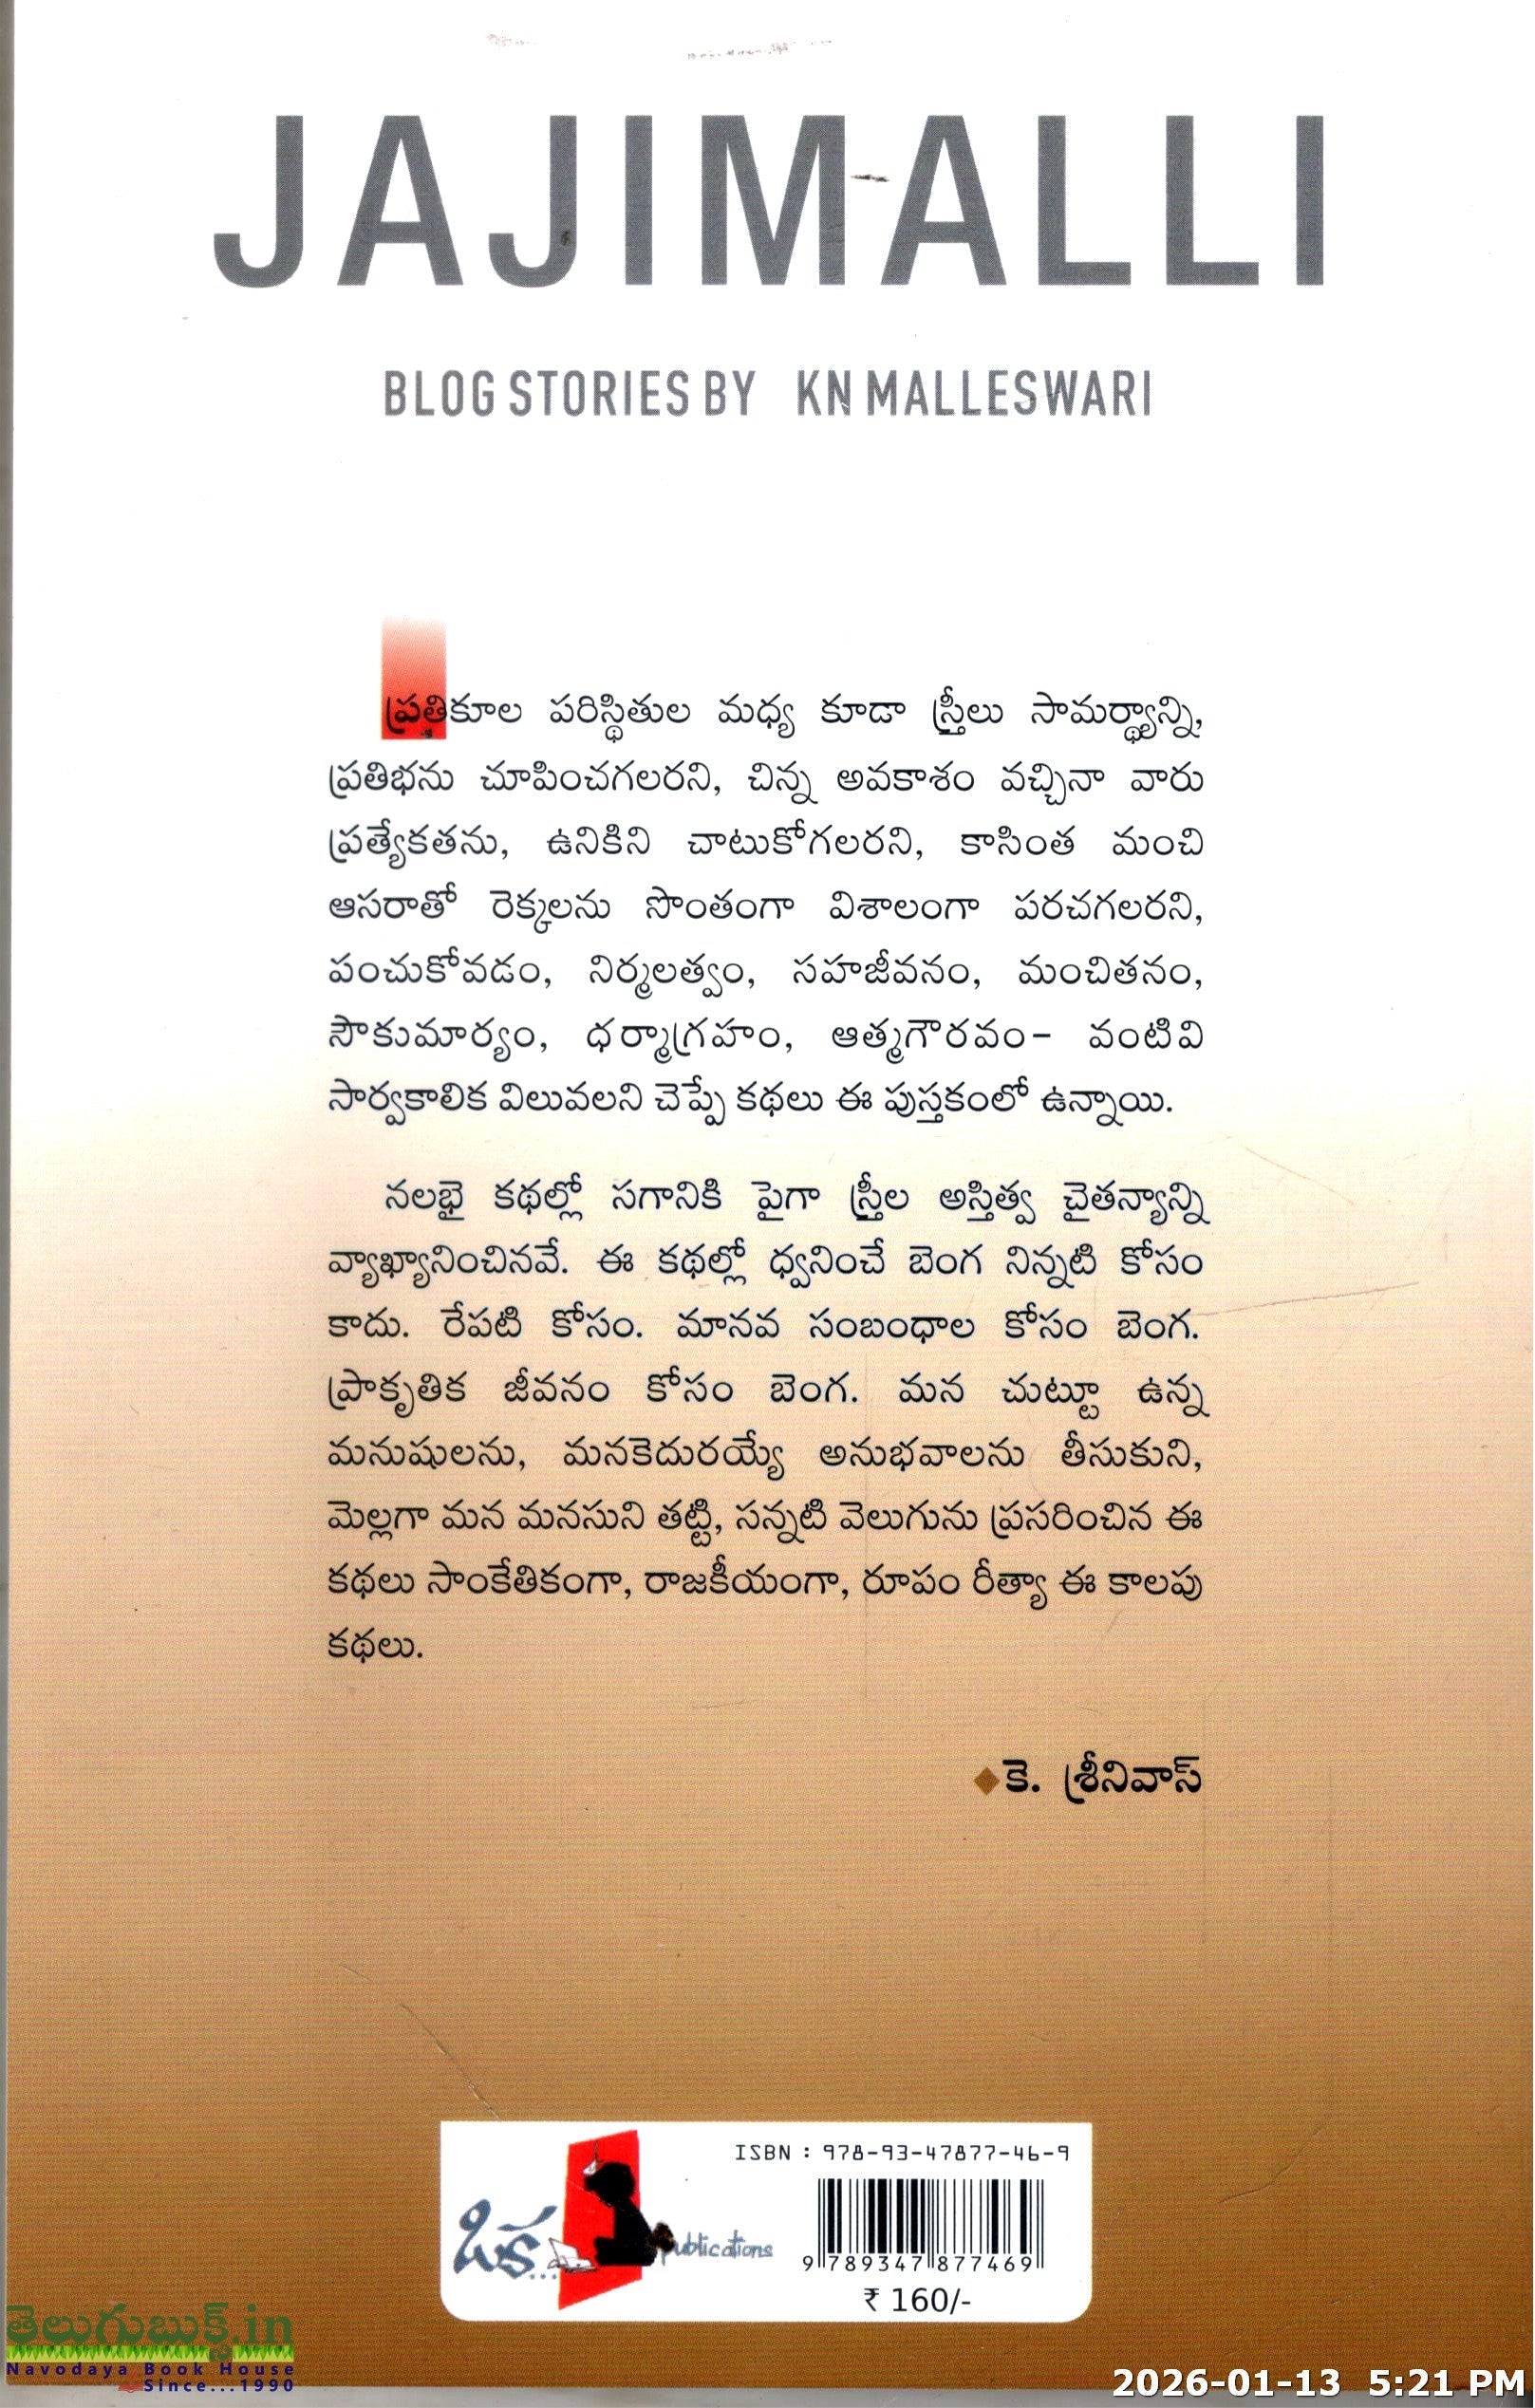 JAJIMALLI
BLOG STORIES BY KN MALLESWARI
ప్రతికూల పరిస్థితుల మధ్య కూడా స్త్రీలు సామర్థ్యాన్ని,
ప్రతిభను చూపించగలరని, చిన్న అవకాశం వచ్చినా వారు
ప్రత్యేకతను, ఉనికిని చాటుకోగలరని, కాసింత మంచి
ఆసరాతో రెక్కలను సొంతంగా విశాలంగా పరచగలరని,
పంచుకోవడం, నిర్మలత్వం, సహజీవనం, మంచితనం,
సౌకుమార్యం, ధర్మాగ్రహం, ఆత్మగౌరవం- వంటివి
సార్వకాలిక విలువలని చెప్పే కథలు ఈ పుస్తకంలో ఉన్నాయి.
నలభై కథల్లో సగానికి పైగా స్త్రీల అస్తిత్వ చైతన్యాన్ని
వ్యాఖ్యానించినవే. ఈ కథల్లో ధ్వనించే బెంగ నిన్నటి కోసం
కాదు. రేపటి కోసం. మానవ సంబంధాల కోసం బెంగ.
ప్రాకృతిక జీవనం కోసం బెంగ. మన చుట్టూ ఉన్న
మనుషులను, మనకెదురయ్యే అనుభవాలను తీసుకుని,
మెల్లగా మన మనసుని తట్టి, సన్నటి వెలుగును ప్రసరించిన ఈ
కథలు సాంకేతికంగా, రాజకీయంగా, రూపం రీత్యా ఈ కాలపు
కథలు.
◆కె. శ్రీనివాస్
ISBN : 978-93-47877-46-9
ఒక... publications
9 789347 877469
₹ 160/-
తెలుగుబుక్స్.in
Navodaya Book House
Since...1990
2026-01-13 5:21 PM